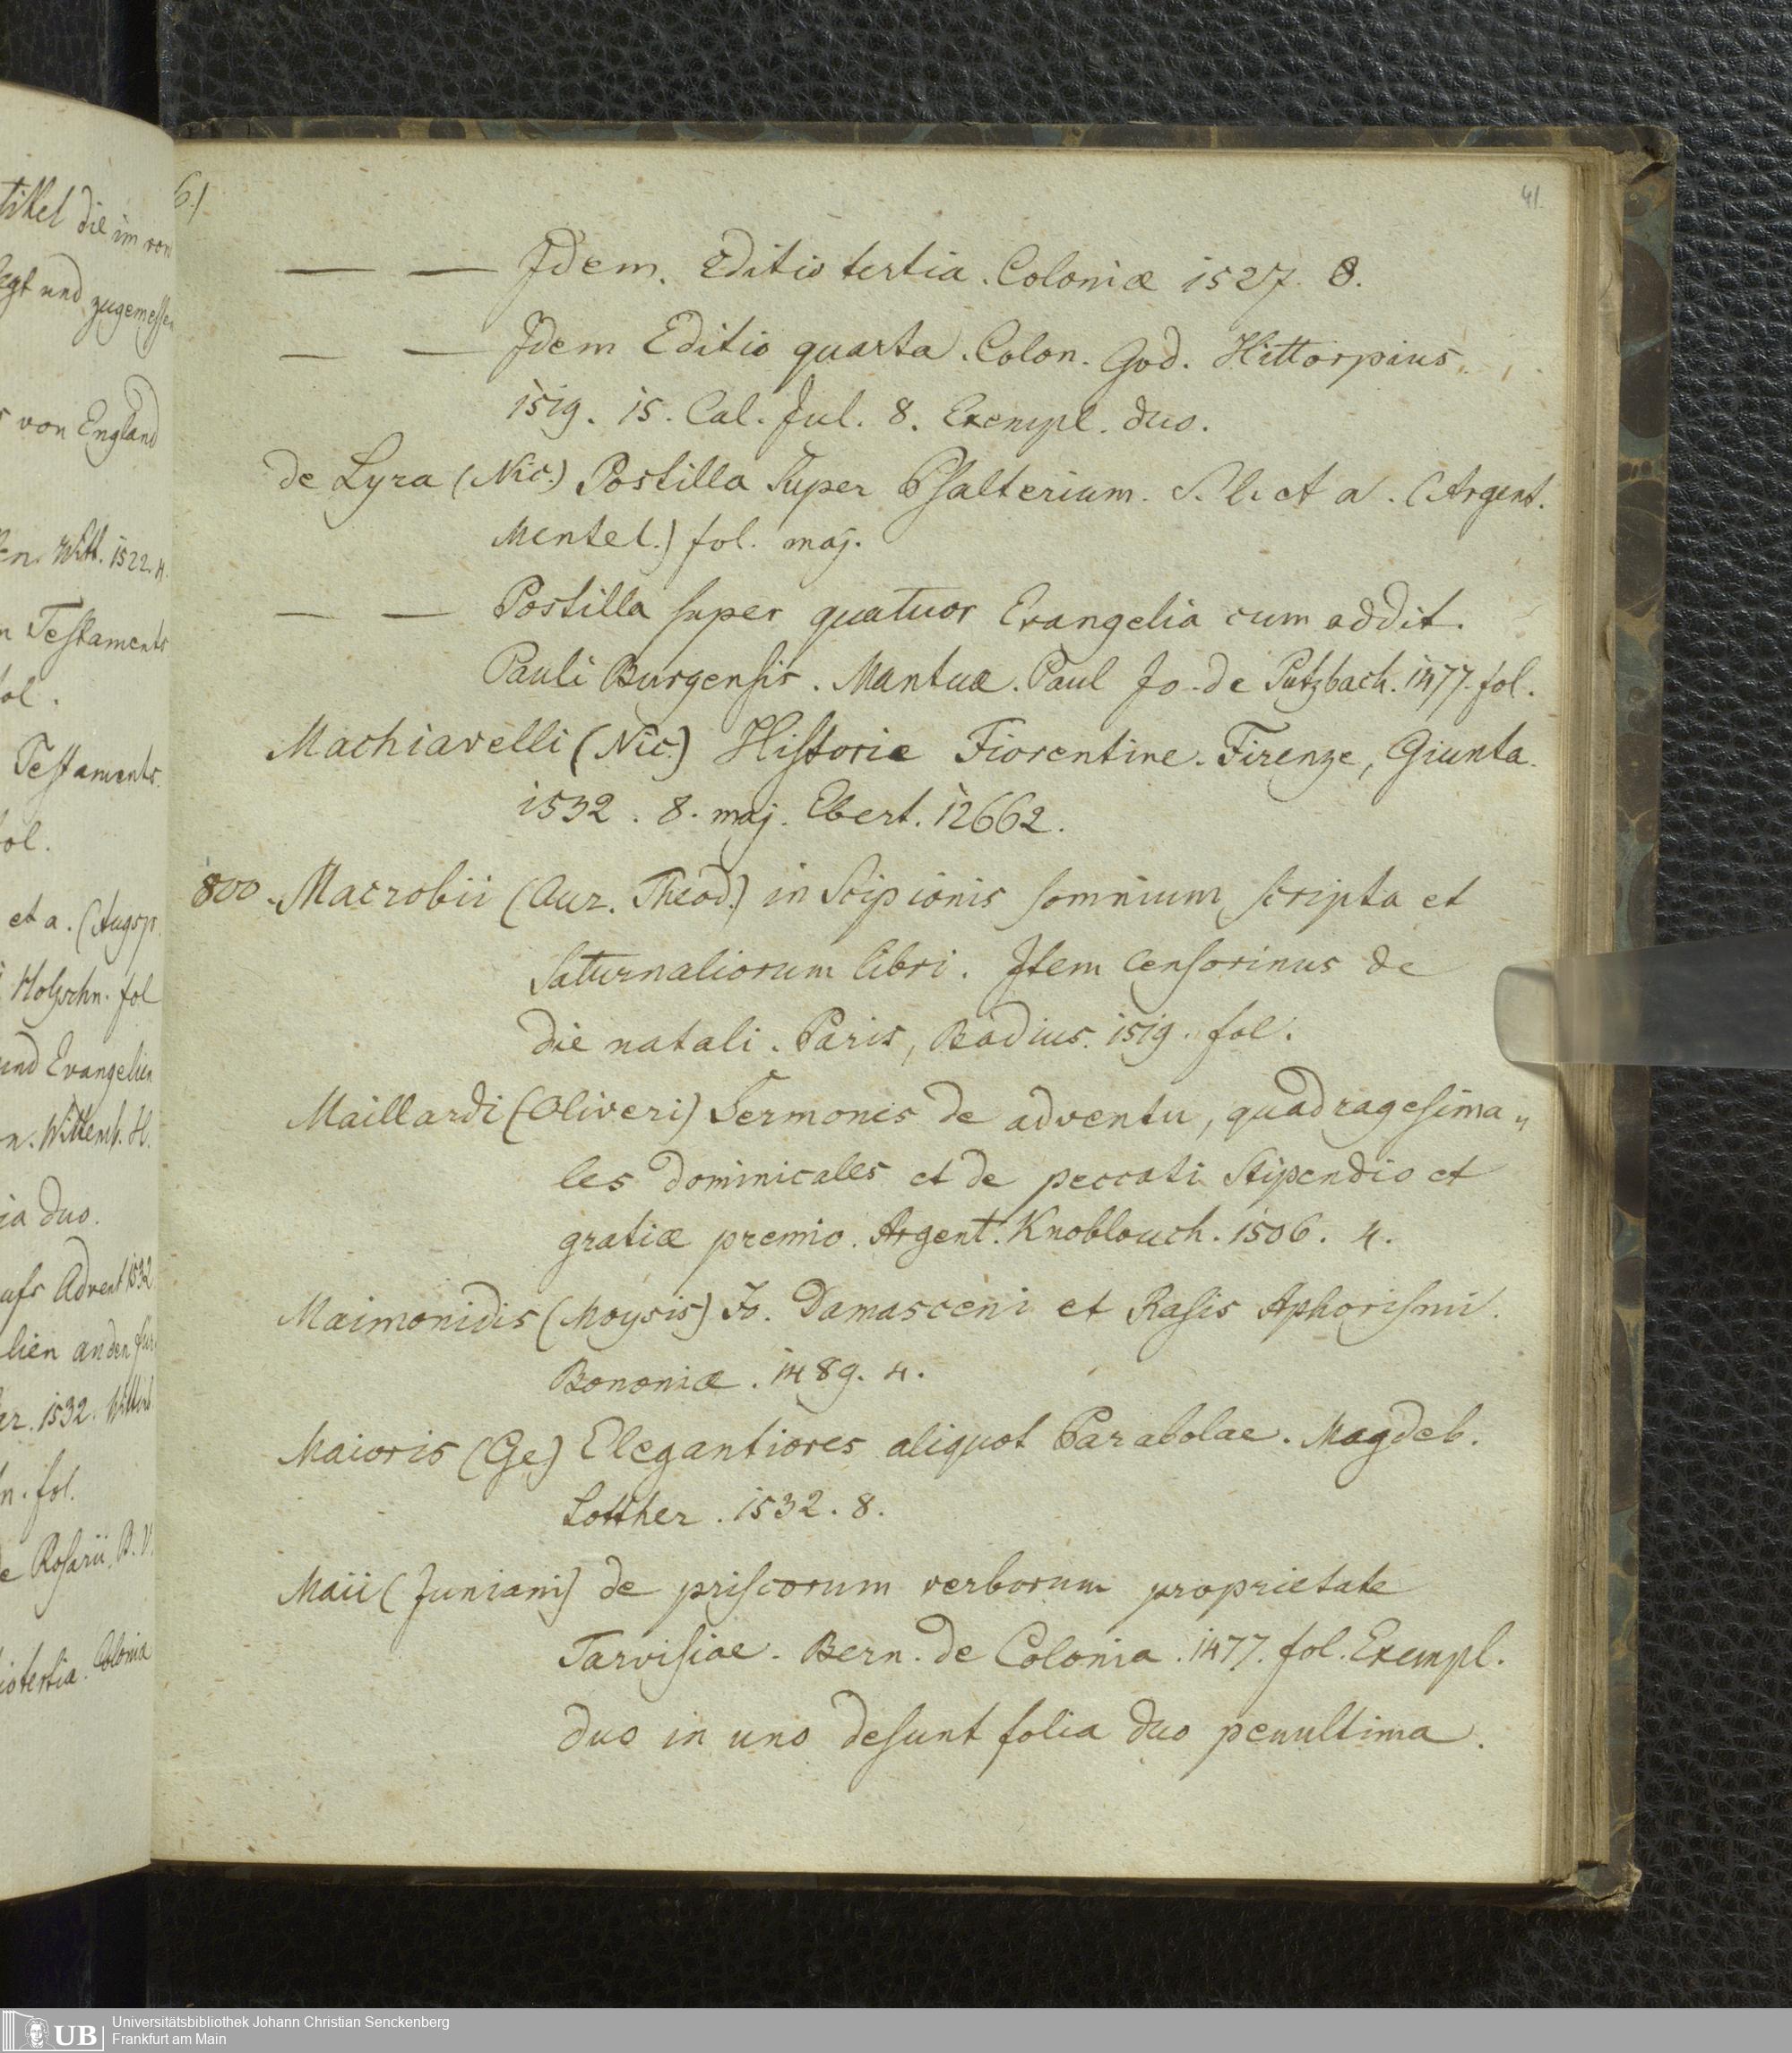 tikel die im von
legt und zugemessen
von England
Witt. 1522. 4.
n Testaments
fol.
Testaments.
fol.
et a. (Augsp.
Holzschn. fol
und Evangelien
n. Wittemb. H.
ia duo.
aufs Advent 1532
lien an den
1532.
n. fol.
Rosarii. B. V.
io tertia. Colonia
6.)
41.
— — Idem. Editio tertia. Coloniæ 1527. 8.
— — Idem Editio quarta. Colon. God. Hittorpius.
1519. 15. Cal. Jul. 8. Exempl. duo.
de Lyra (Nic.) Postilla super Psalterium. S. l. et a. (Argent.
Mentel.) fol. maj.
— — Postilla super quatuor Evangelia cum addit.
Pauli Burgensis. Mantuæ. Paul Jo. de Putzbach. 1477. fol.
Machiavelli (Nic.) Historie Fiorentine. Firenze, Giunta.
1532. 8. maj. Ebert. 12662.
800. Macrobii (Aur. Theod.) in Scipionis somnium scripta et
Saturnaliorum libri. Item Censorinus de
die natali. Paris, Badius. 1519. fol.
Maillardi (Oliveri) Sermones de adventu, quadragesima„
les dominicales et de peccati stipendio et
gratiæ premio. Argent. Knoblouch. 1506. 4.
Maimonidis (Moysis) Jo. Damasceni et Rasis Aphorismi.
Bononiæ. 1489. 4.
Maioris (Ge) Elegantiores aliquot Parabolae. Magdeb.
Lotther. 1532. 8.
Maii (Juniani) de priscorum verborum proprietate
Tarvisiae. Bern. de Colonia. 1477. fol. Exempl.
duo in uno desunt folia duo penultima.
UB
Universitätsbibliothek Johann Christian Senckenberg
Frankfurt am Main